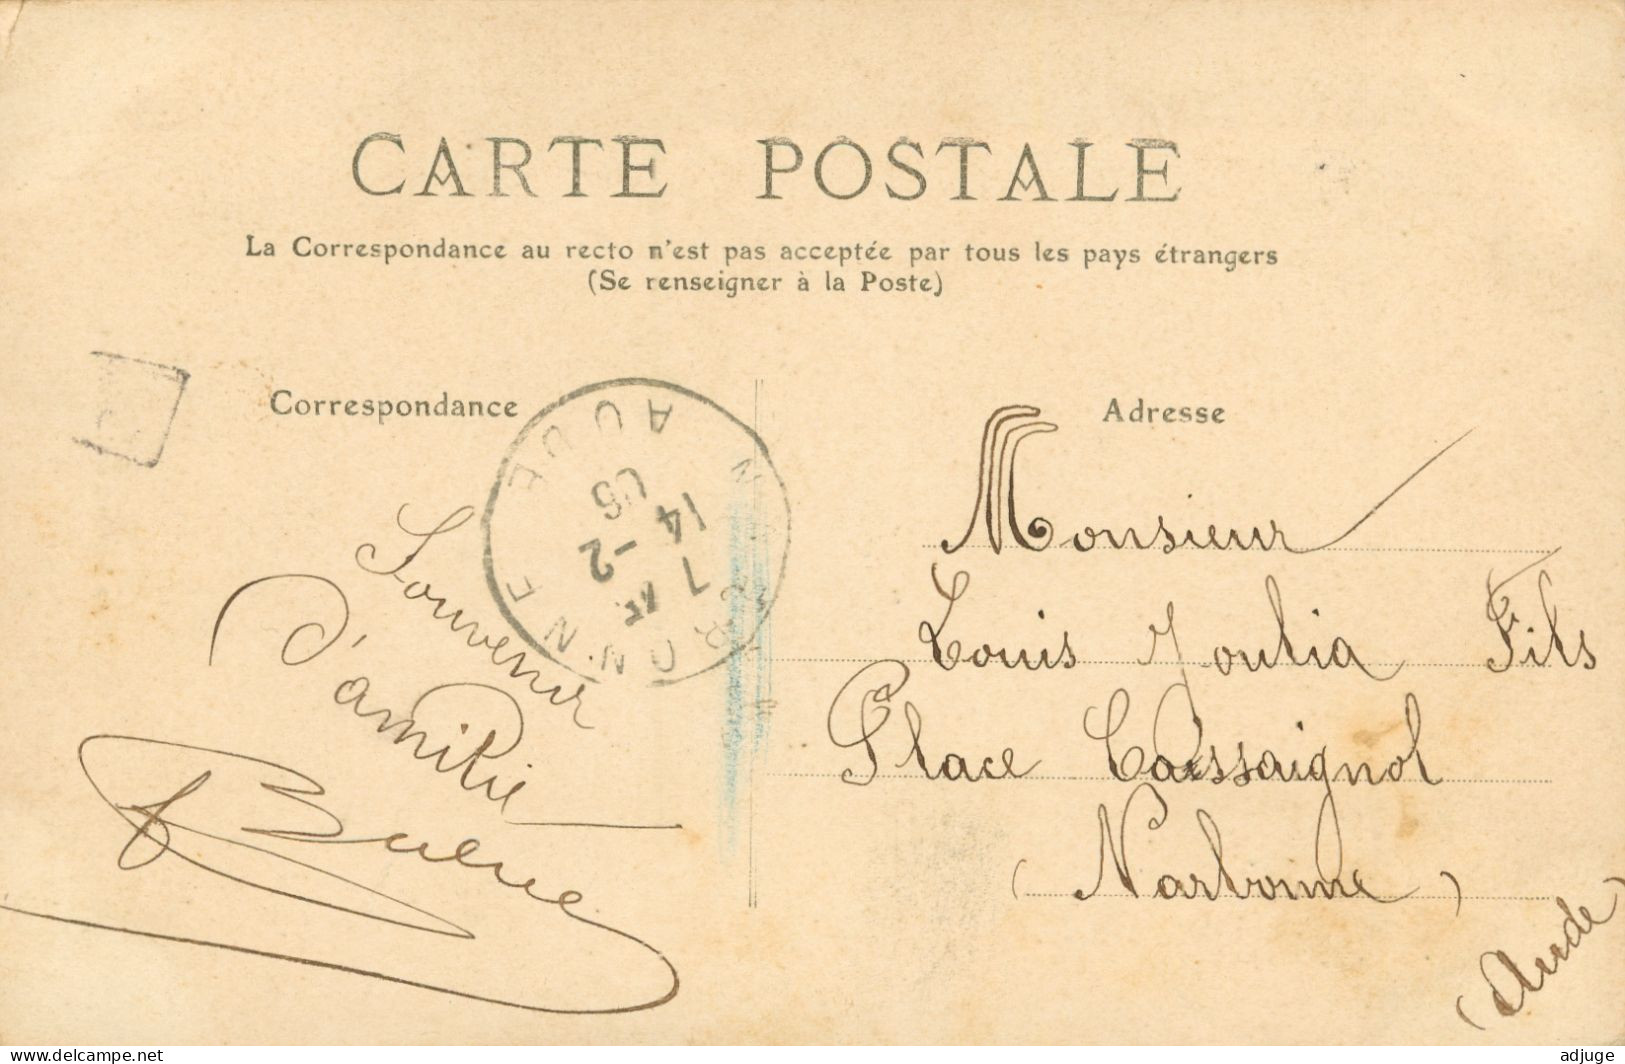 CARTE POSTALE
La Correspondance au recto n'est pas acceptée par tous les pays étrangers
(Se renseigner à la Poste)
Correspondance
Adresse
NARBONNE
AUDE
14
7 -2
06
Souvenir
d'amitié
Monsieur
Louis Joulia Fils
Place Cassaignol
(Narbonne)
(Aude)
delcampe.net
adjuge